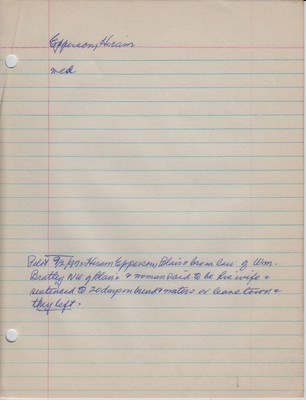 Epperson, Hiram
med
9/2/92 Hiram Epperson, Blair & bro in law of Wm.
Bratley NW of Blair & woman said to be his wife &
sentenced to 20 days on bread & water or leave town &
they left.